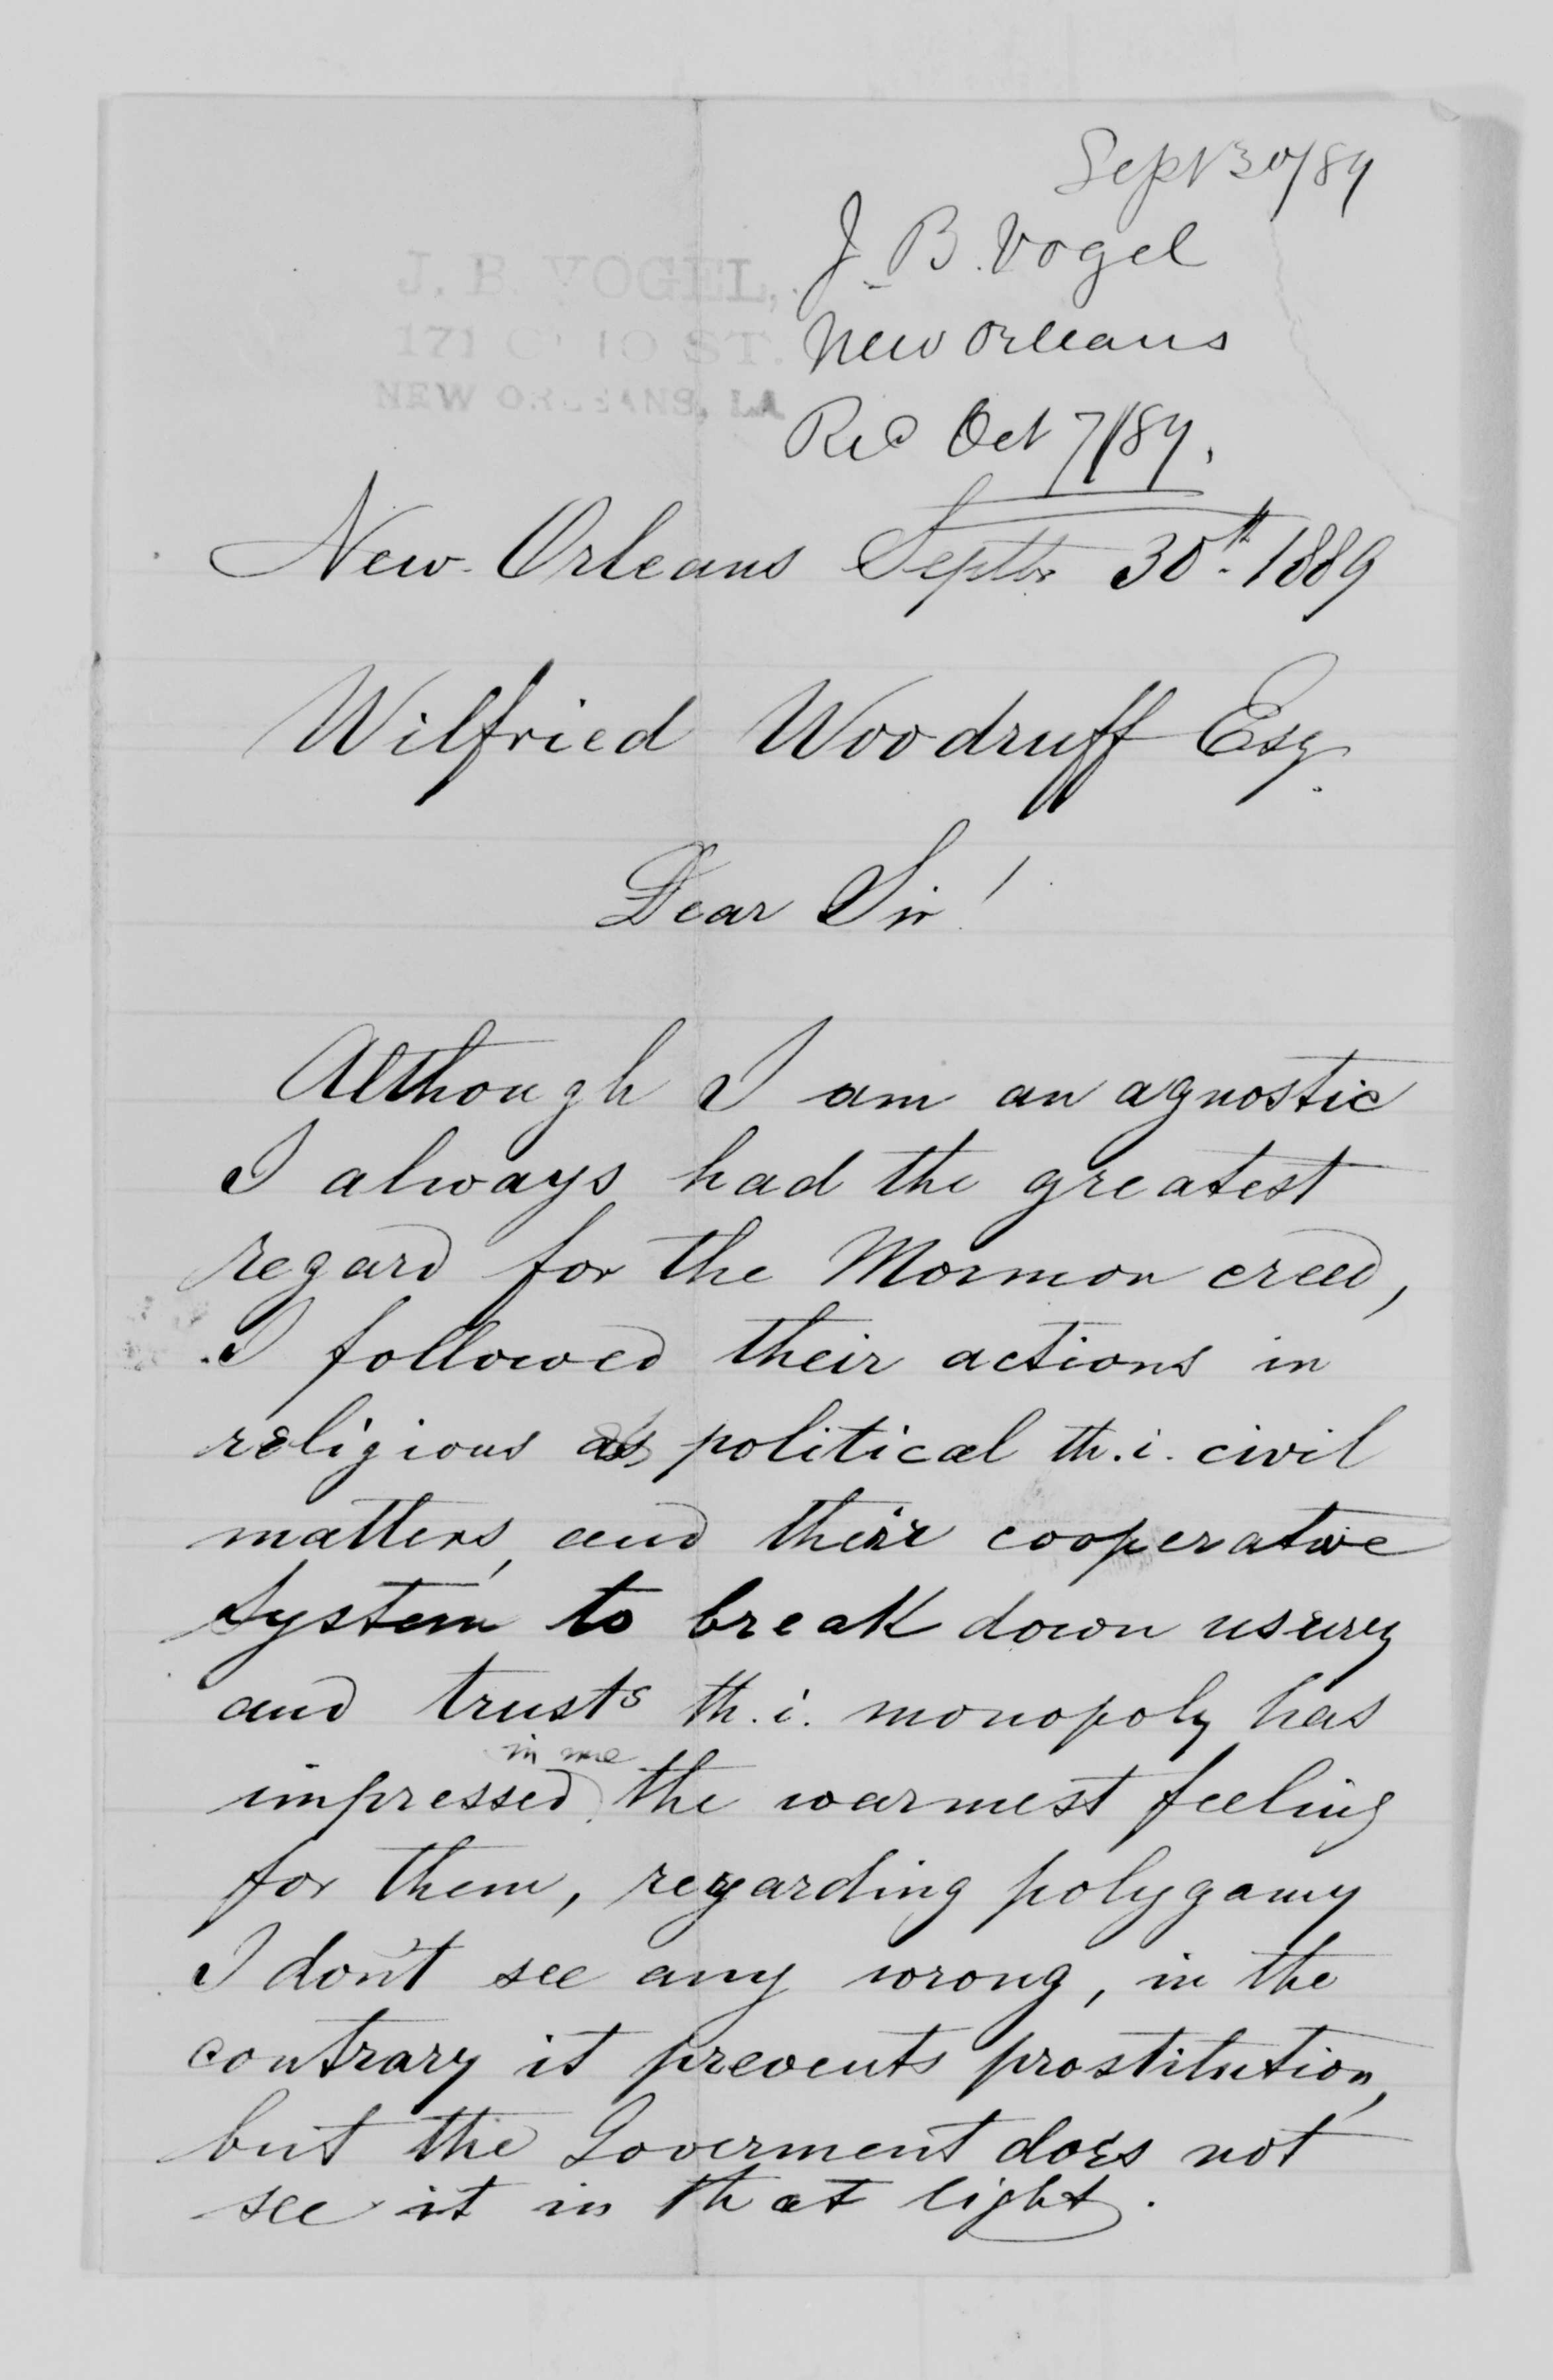 Sept 30/89
J. B. Vogel
New Orleans
Rec Oct 7/89.
J. B. VOGEL,
171 CLIO ST.
NEW ORLEANS, LA
New Orleans Septbr 30th 1889
Wilfried Woodruff Esq.
Dear Sir!
Although I am an agnostic
I always had the greatest
regard for the Mormon creed,
I followed their actions in
religious as political th.i. civil
matters, and their cooperative
system to break down usury
and trusts th.i. monopoly has
in me
impressed the warmest feeling
for them, regarding polygamy
I don't see any wrong, in the
contrary it prevents prostitution,
but the Goverment does not
see it in that light.